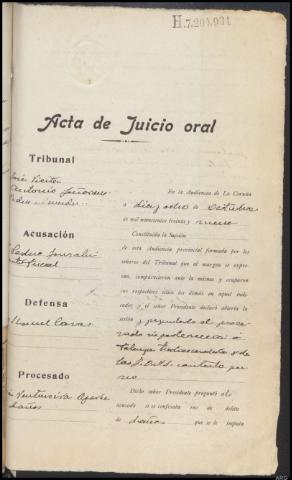 H.7.204,931
Acta de Juicio oral
Tribunal
Antonio
En la Audiencia de La Coruña
a diez y ocho de Octubre
de mil novecientos treinta y nueve
Constituída la Sección
de esta Audiencia provincial formada por los
señores del Tribunal que al margen se expre-
san, comparecieron ante la misma y ocuparon
sus respectivos sitios los demás en aquel indi-
cados, y el señor Presidente declaró abierta la
sesión y preguntado el proce-
sado si pertenecía a
Falange Tradicionalista y de
las J.O.N.S. contestó que
no
Acusación
Pedro González
Fiscal
Defensa
Manuel Casas
Procesado
daños
Dicho señor Presidente preguntó al
procesado si se confesaba reo de delito
de daños que se le imputa
ARG